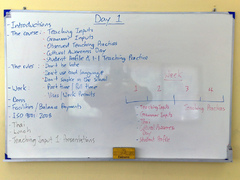 Day 1
- Introductions
- The course : - Teaching Inputs
- Grammar Inputs
- Observed Teaching Practice
- Cultural Awareness Day
- Student Profile & 1-1 Teaching Practice
- The rules : - Don't be late
- Don't use foul language
- Don't smoke in the school
- Work - Part time / Full time
- Visas / Work Permits
- Dorm
- Facilities / Balance Payments
- ISO 9001 : 2008
- Thai
- Lunch
Teaching Input 1 Presentations
1 2 3 4
Teaching Inputs
Teaching Practice
Grammar Inputs
Student Profile